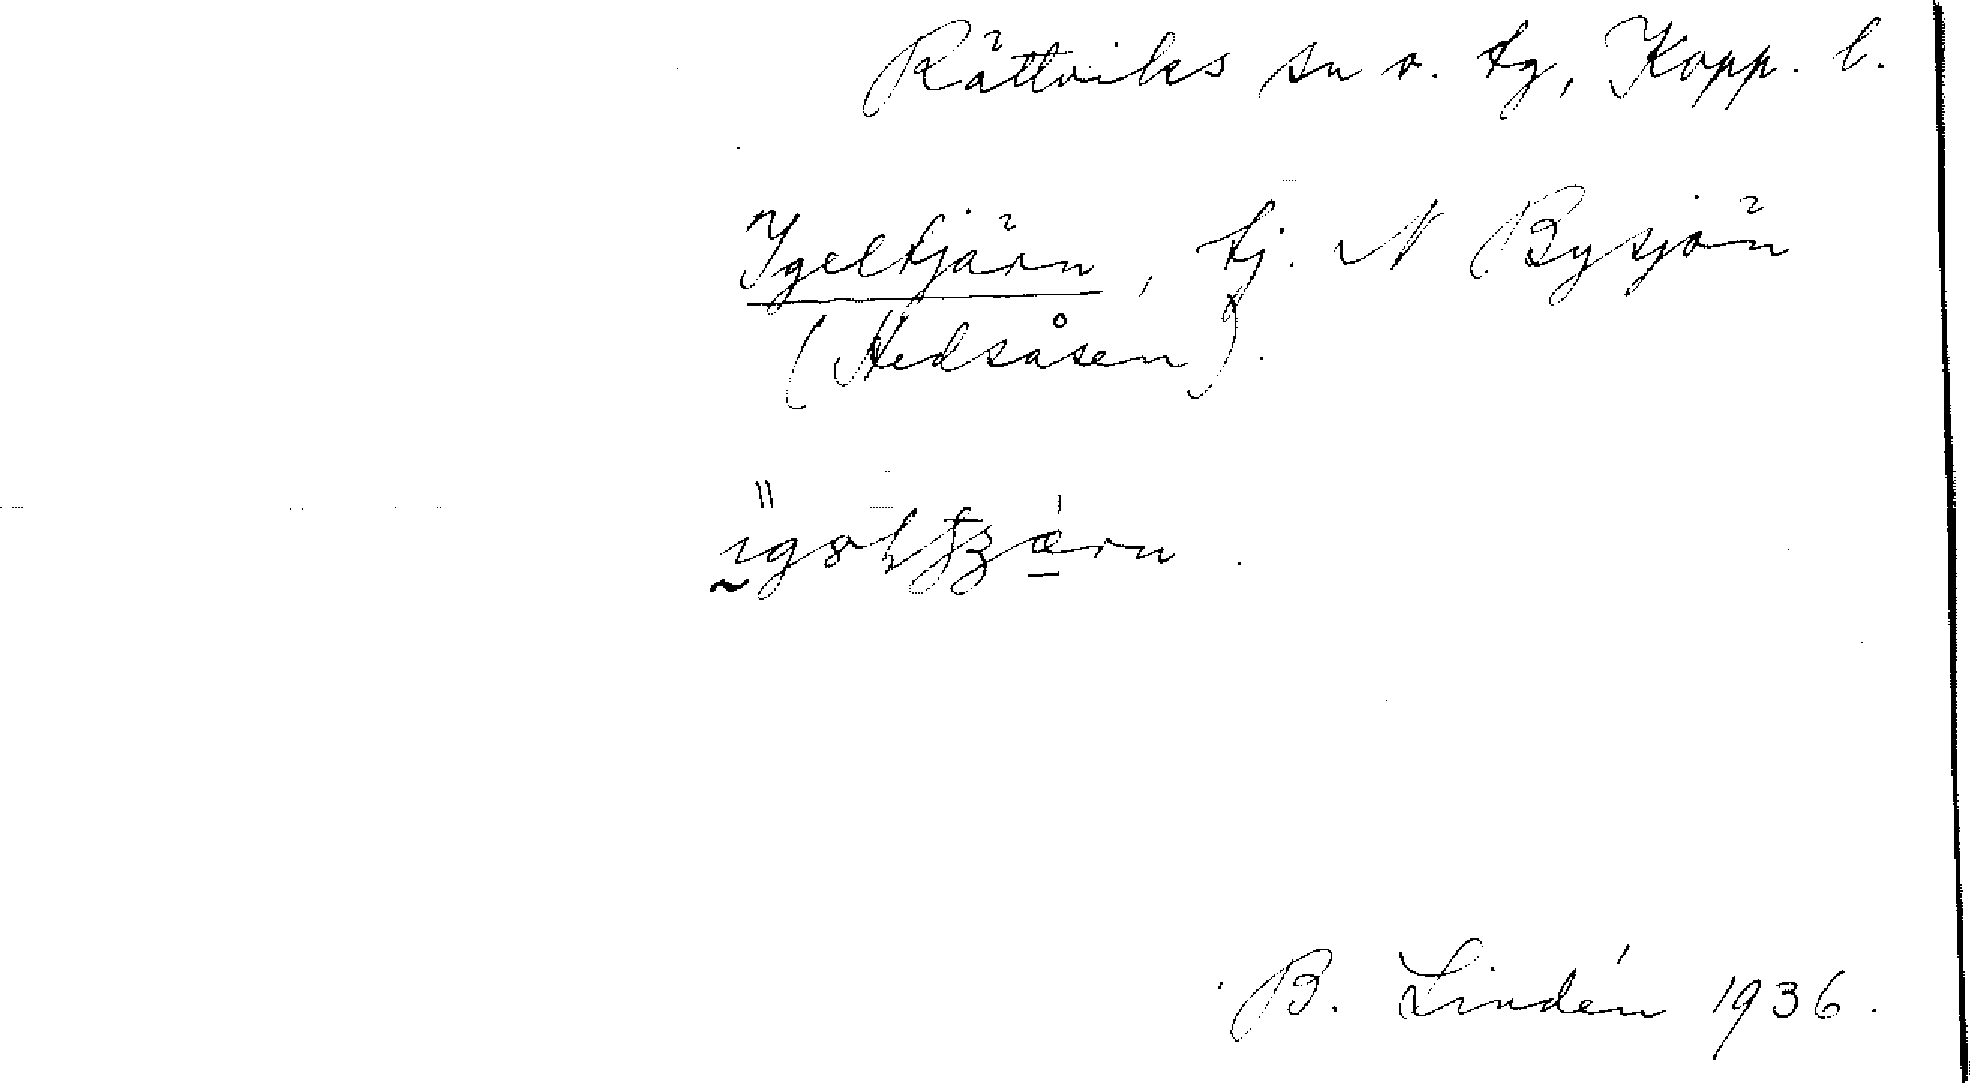 Rättviks sn o. tg, Kopp. l.
Igeltjärn, tj. N Bysjön
(Hedsåsen).
B. Lindén 1936.